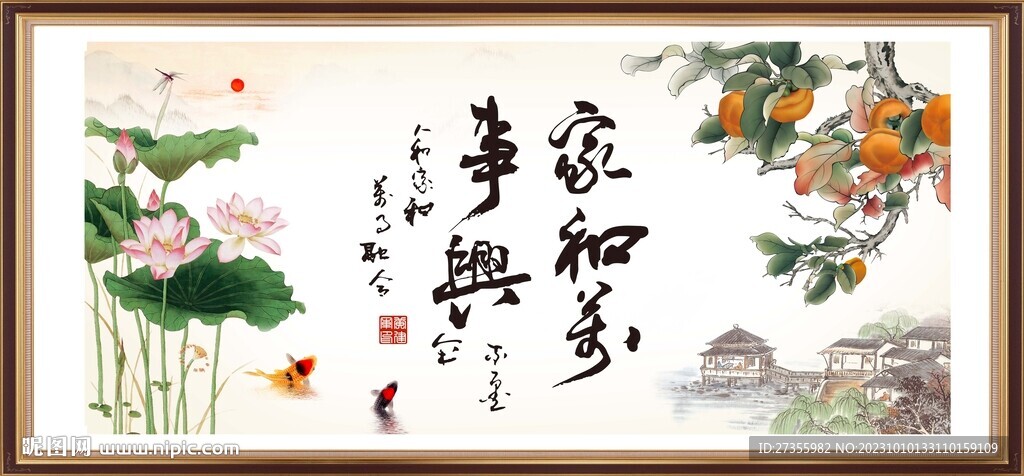 家和萬
事興
人和家和
萬事融合
昵图网 www.nipic.com
ID:27355982 NO:20231010133110159109